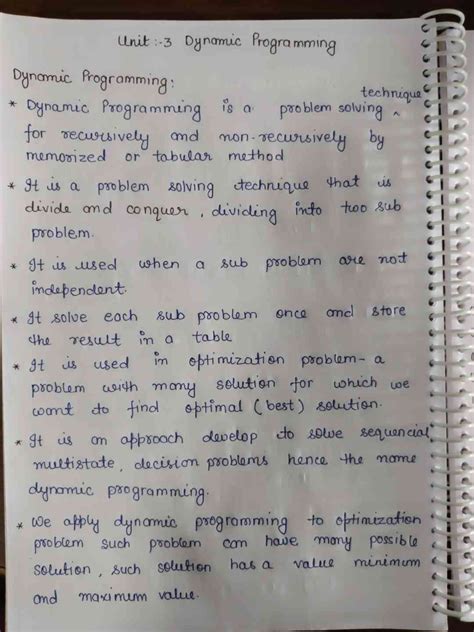 Unit :-3 Dynamic Programming
Dynamic Programming:
* Dynamic Programming is a problem solving ^ technique
for recursively and non-recursively by
memorized or tabular method
* It is a problem solving technique that is
divide and conquer, dividing into two sub
problem.
* It is used when a sub problem are not
independent.
* It solve each sub problem once and store
the result in a table
* It is used in optimization problem - a
problem with many solution for which we
want to find optimal (best) solution.
* It is an approach develop to solve sequencial
multistate, decision problems hence the name
dynamic programming.
* We apply dynamic programming to optimization
problem such problem can have many possible
solution, such solution has a value minimum
and maximum value.